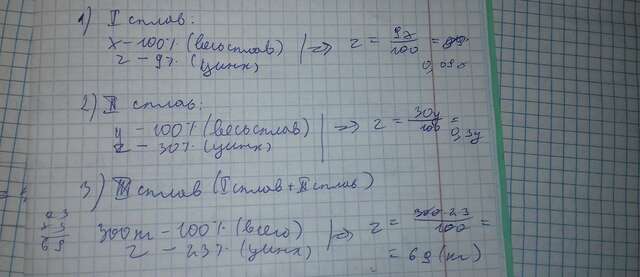 1) I сплав:
x - 100% (весь сплав)
z - 9% (цинк)
=> z = 9x/100 =
0,09x
2) II сплав:
y - 100% (весь сплав)
z - 30% (цинк)
=> z = 30y/100 =
0,3y
3) III сплав (I сплав + II сплав)
300 кг - 100% (всего)
z - 23% (цинк)
=> z = 300·23/100 =
= 69 (кг)
23
×3
69